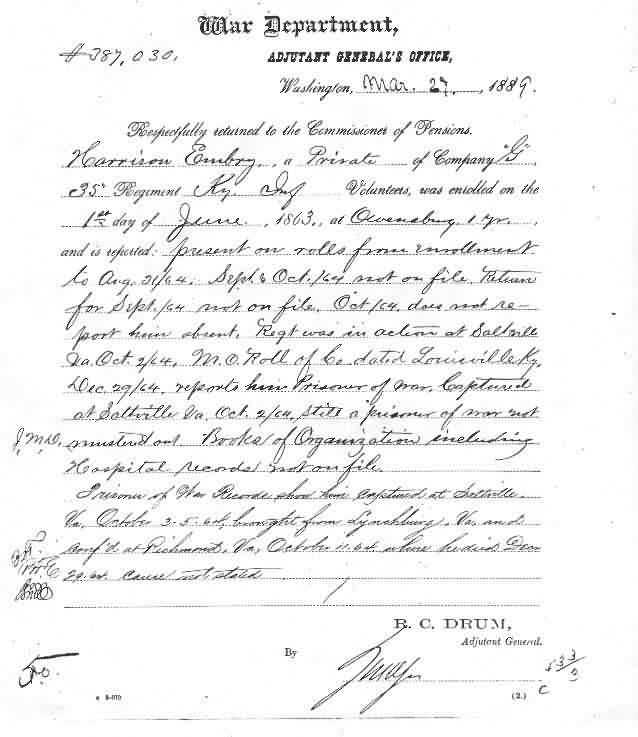 War Department,
#387,030.
ADJUTANT GENERAL'S OFFICE,
Washington, Mar. 27, 1889.
Respectfully returned to the Commissioner of Pensions.
Harrison Embry, a Private of Company "G"
35" Regiment Ky Inf Volunteers, was enrolled on the
1st day of June, 1863, at Owensburg, 1 yr.,
and is reported: present on rolls from enrollment
to Aug. 31/64. Sept & Oct./64 not on file. Return
for Sept./64 not on file. Oct/64 does not re-
port him absent. Regt was in action at Saltville
Va. Oct. 2/64. M.O. Roll of Co dated Louisville Ky.
Dec. 29/64. reports him Prisoner of war. Captured
at Saltville Va. Oct. 2/64. Still a prisoner of war not
mustered out. Books of Organization including
Hospital records not on file.
Prisoner of War Records show him captured at Saltville
Va, October 3-5. 64, brought from Lynchburg, Va. and
conf'd at Richmond, Va, October 11. 64. where he died Decr
29. 64 cause not stated
R. C. DRUM,
Adjutant General.
By
(2.)